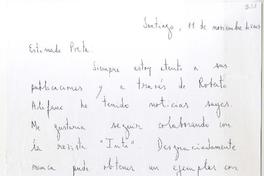 Santiago, 11 de noviembre de
Estimado Poeta:
Siempre estoy atento a sus
publicaciones y a través de Roberto
he tenido noticias suyas.
Me gustaría seguir colaborando con
la revista "Inti". Desgraciadamente
nunca pude obtener un ejemplar con